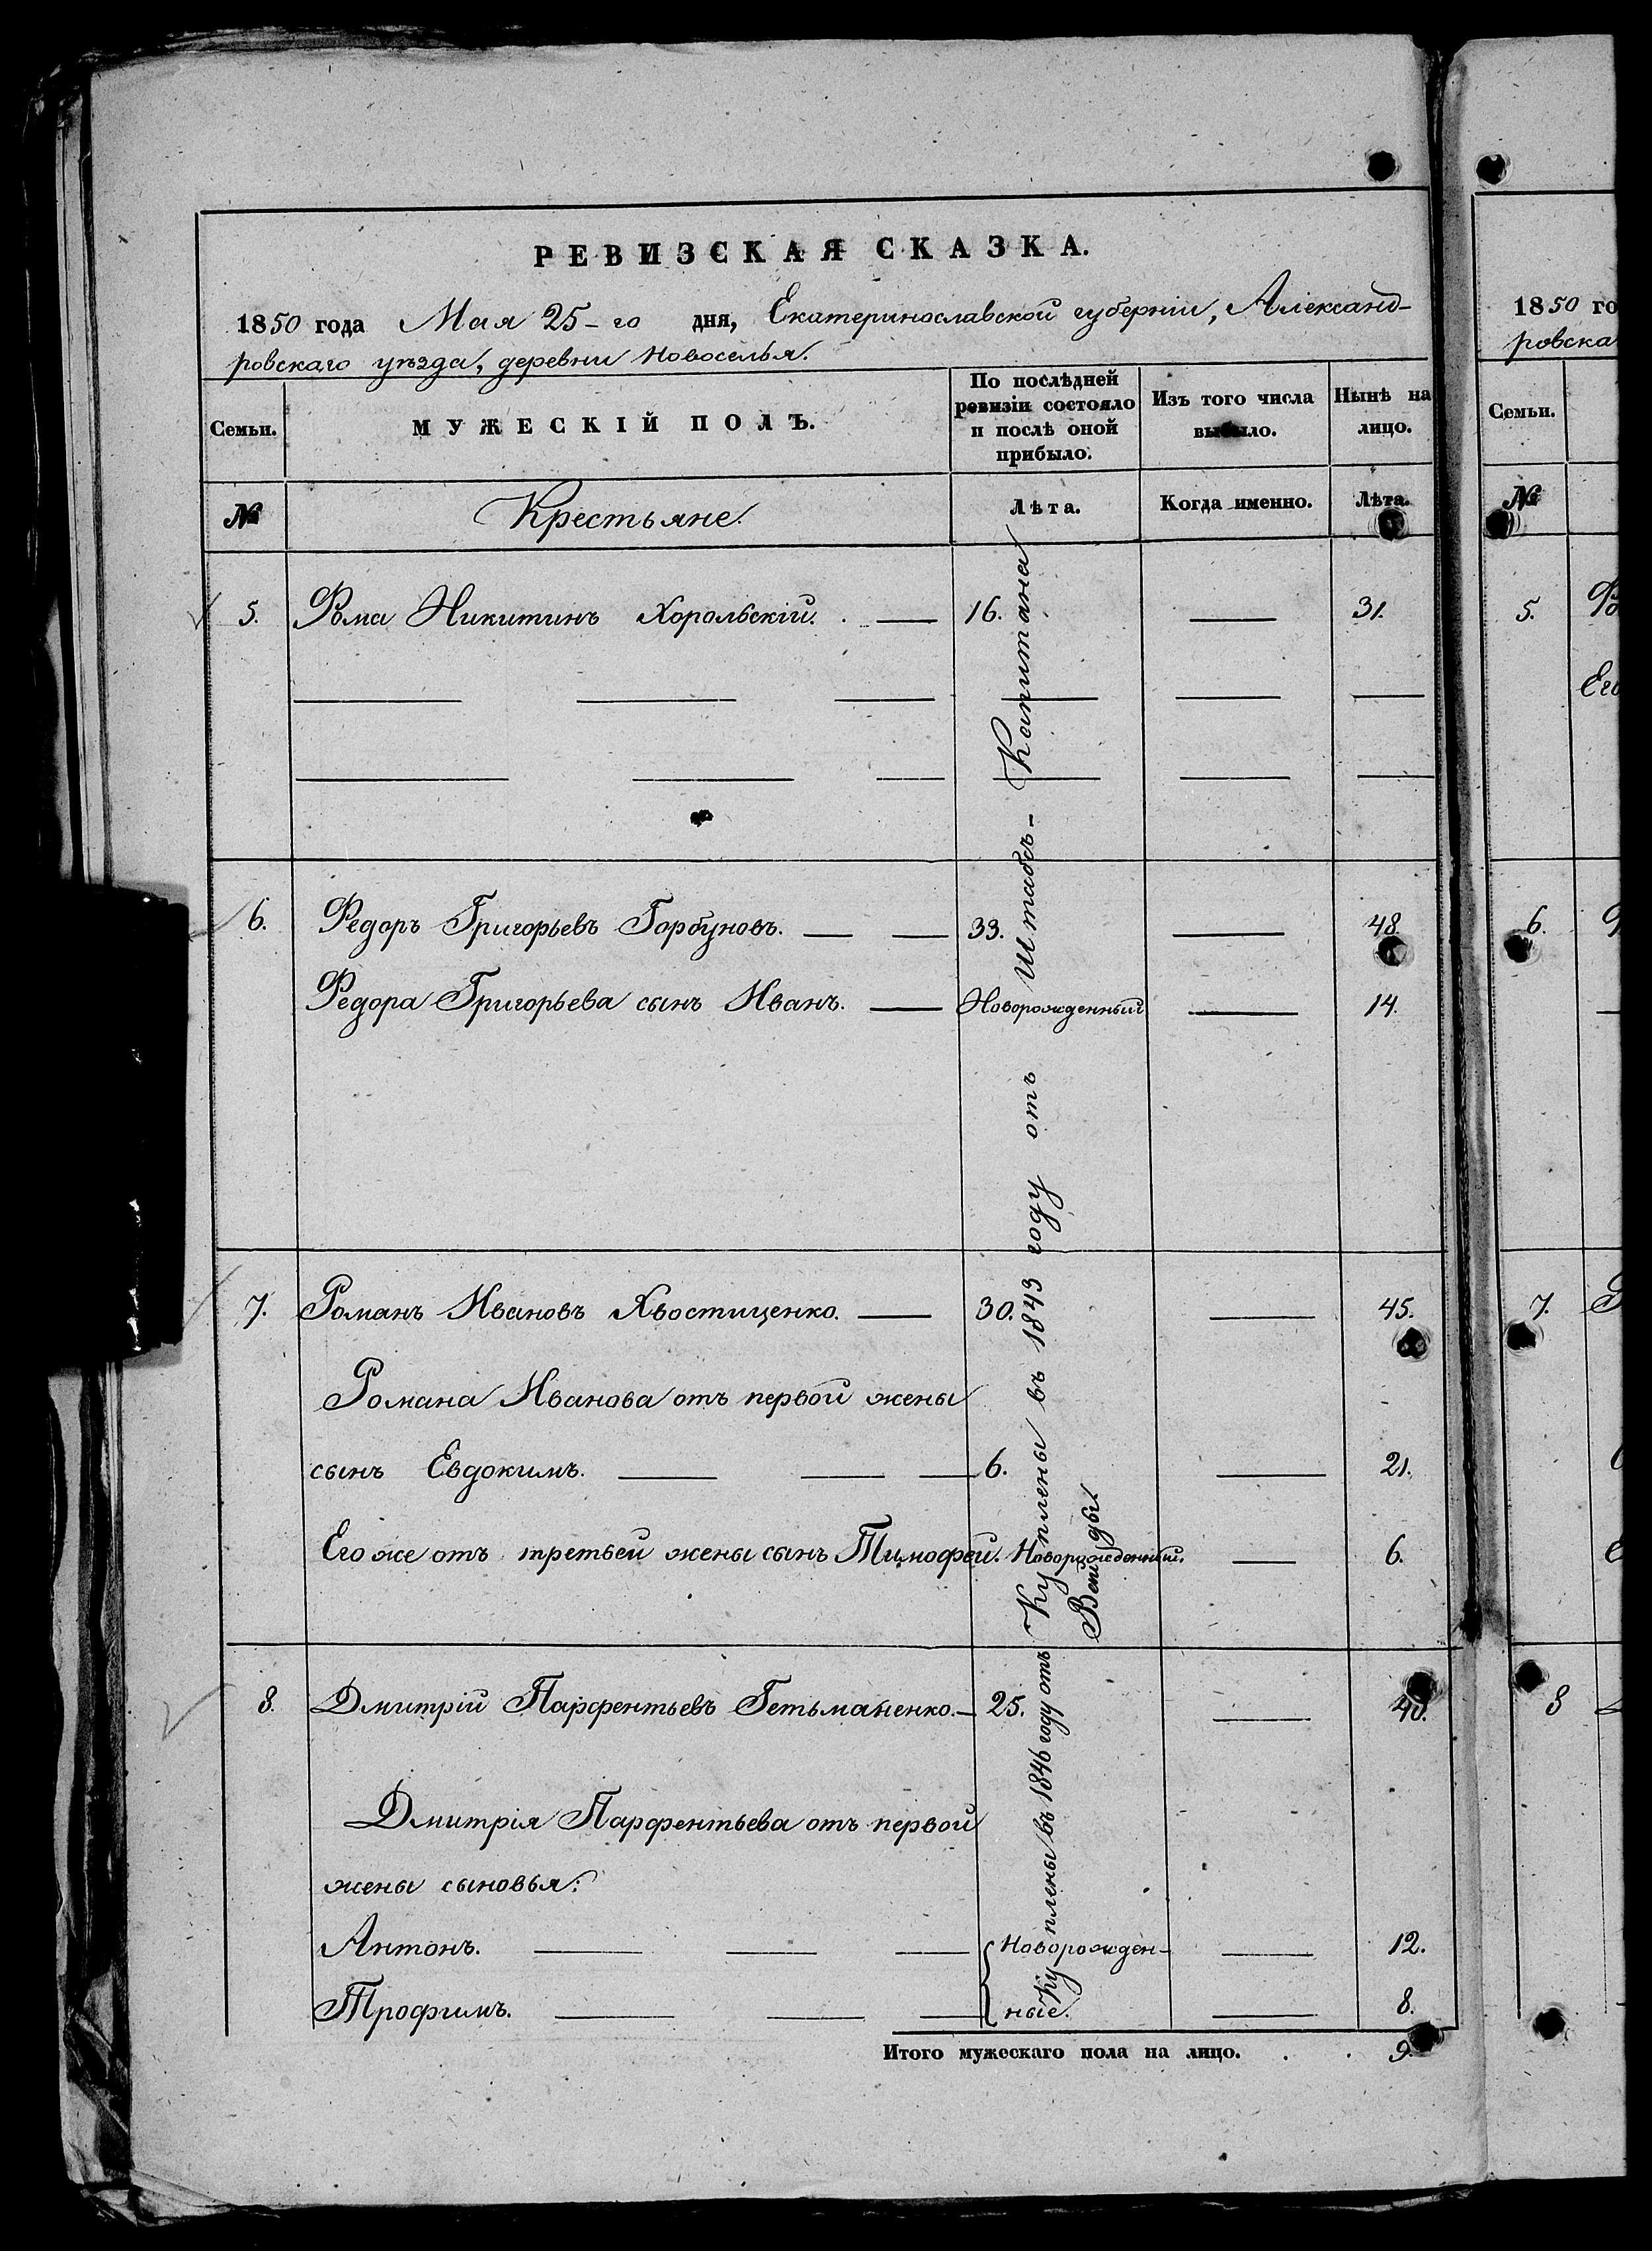 РЕВИЗСКАЯ СКАЗКА.
1850 года Мая 25-го дня, Екатеринославской губерніи, Александ-
ровскаго уѣзда, деревни Новоселья.
Семьи.
МУЖЕСКІЙ ПОЛЪ.
По послѣдней
ревизіи состояло
и послѣ оной
прибыло.
Изъ того числа
выбыло.
Нынѣ на
лицо.
№
Крестьяне.
Лѣта.
Когда именно.
Лѣта.
5. Фома Никитинъ Хорольскій. 16. 31.
6. Федоръ Григорьевъ Горбуновъ. 33. 48.
Федора Григорьева сынъ Иванъ. Новорожденный 14.
7. Романъ Ивановъ Хвостиценко. 30. 45.
Романа Иванова отъ первой жены
сынъ Евдокимъ. 6. 21.
Его же отъ третьей жены сынъ Тимофей. Новорожденный. 6.
Куплены въ 1843 году отъ Штабсъ-Капитана
8. Дмитрій Парфентьевъ Гетьманенко. 25. 40.
Дмитрія Парфентьева отъ первой
жены сыновья:
Антонъ. Новорожден- 12.
Трофимъ. ные. 8.
Куплены въ 1846 году отъ
Итого мужескаго пола на лицо. . . 9.
1850 го
ровска
Семьи.
№
5.
Его
6.
7.
8